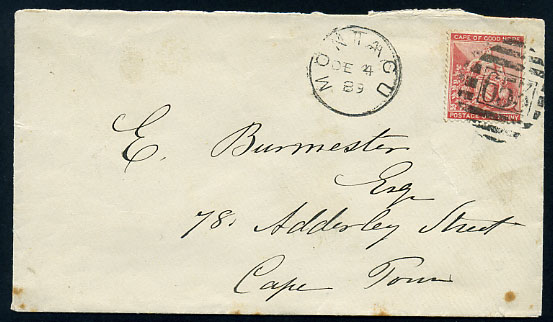 MONTAGU
DE 4
89
CAPE OF GOOD HOPE
POSTAGE ONE PENNY
E. Burmester
Esq
78, Adderley Street
Cape Town